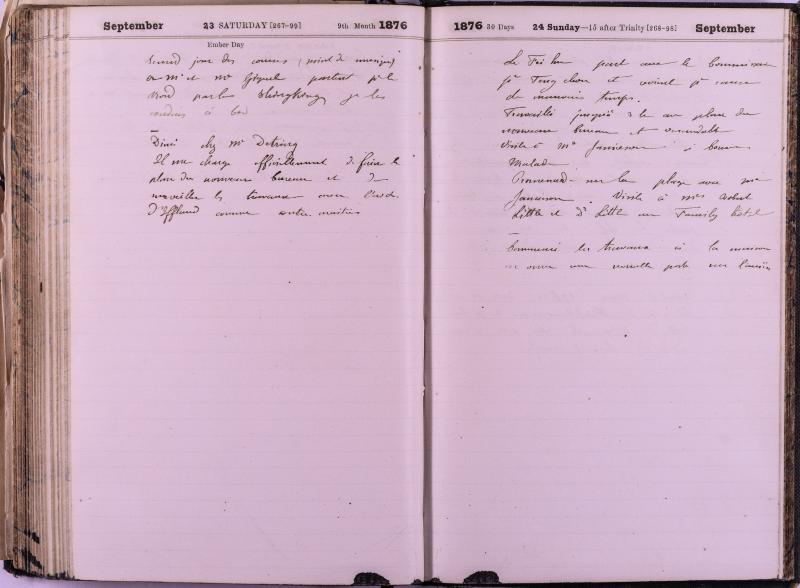 September 23 SATURDAY [267-99] 9th Month 1876
Ember Day
Second jour des courses (point de musique)
Mr et Me Giquel partent pr le
Nord par le Shingking je les
conduis à bord
Diné chez Mr Detring
Il me charge officiellement de faire le
plan du nouveau bureau et de
surveiller les travaux avec l'aide
d'Iffland comme
1876 30 Days 24 Sunday—15 after Trinity [268-98] September
Le part avec le Commissaire
pr Tong chou et revient pr cause
de mauvais temps.
Travaillé jusqu'à 3 h au plan du
nouveau bureau et
Visite à Mr Jamieson à bour
Malade
Promenade sur la plage avec
Jamieson. Visite à Mrs
Little et Dr Little au Family hotel
Commencé les travaux à la maison
on ouvre une nouvelle porte sur